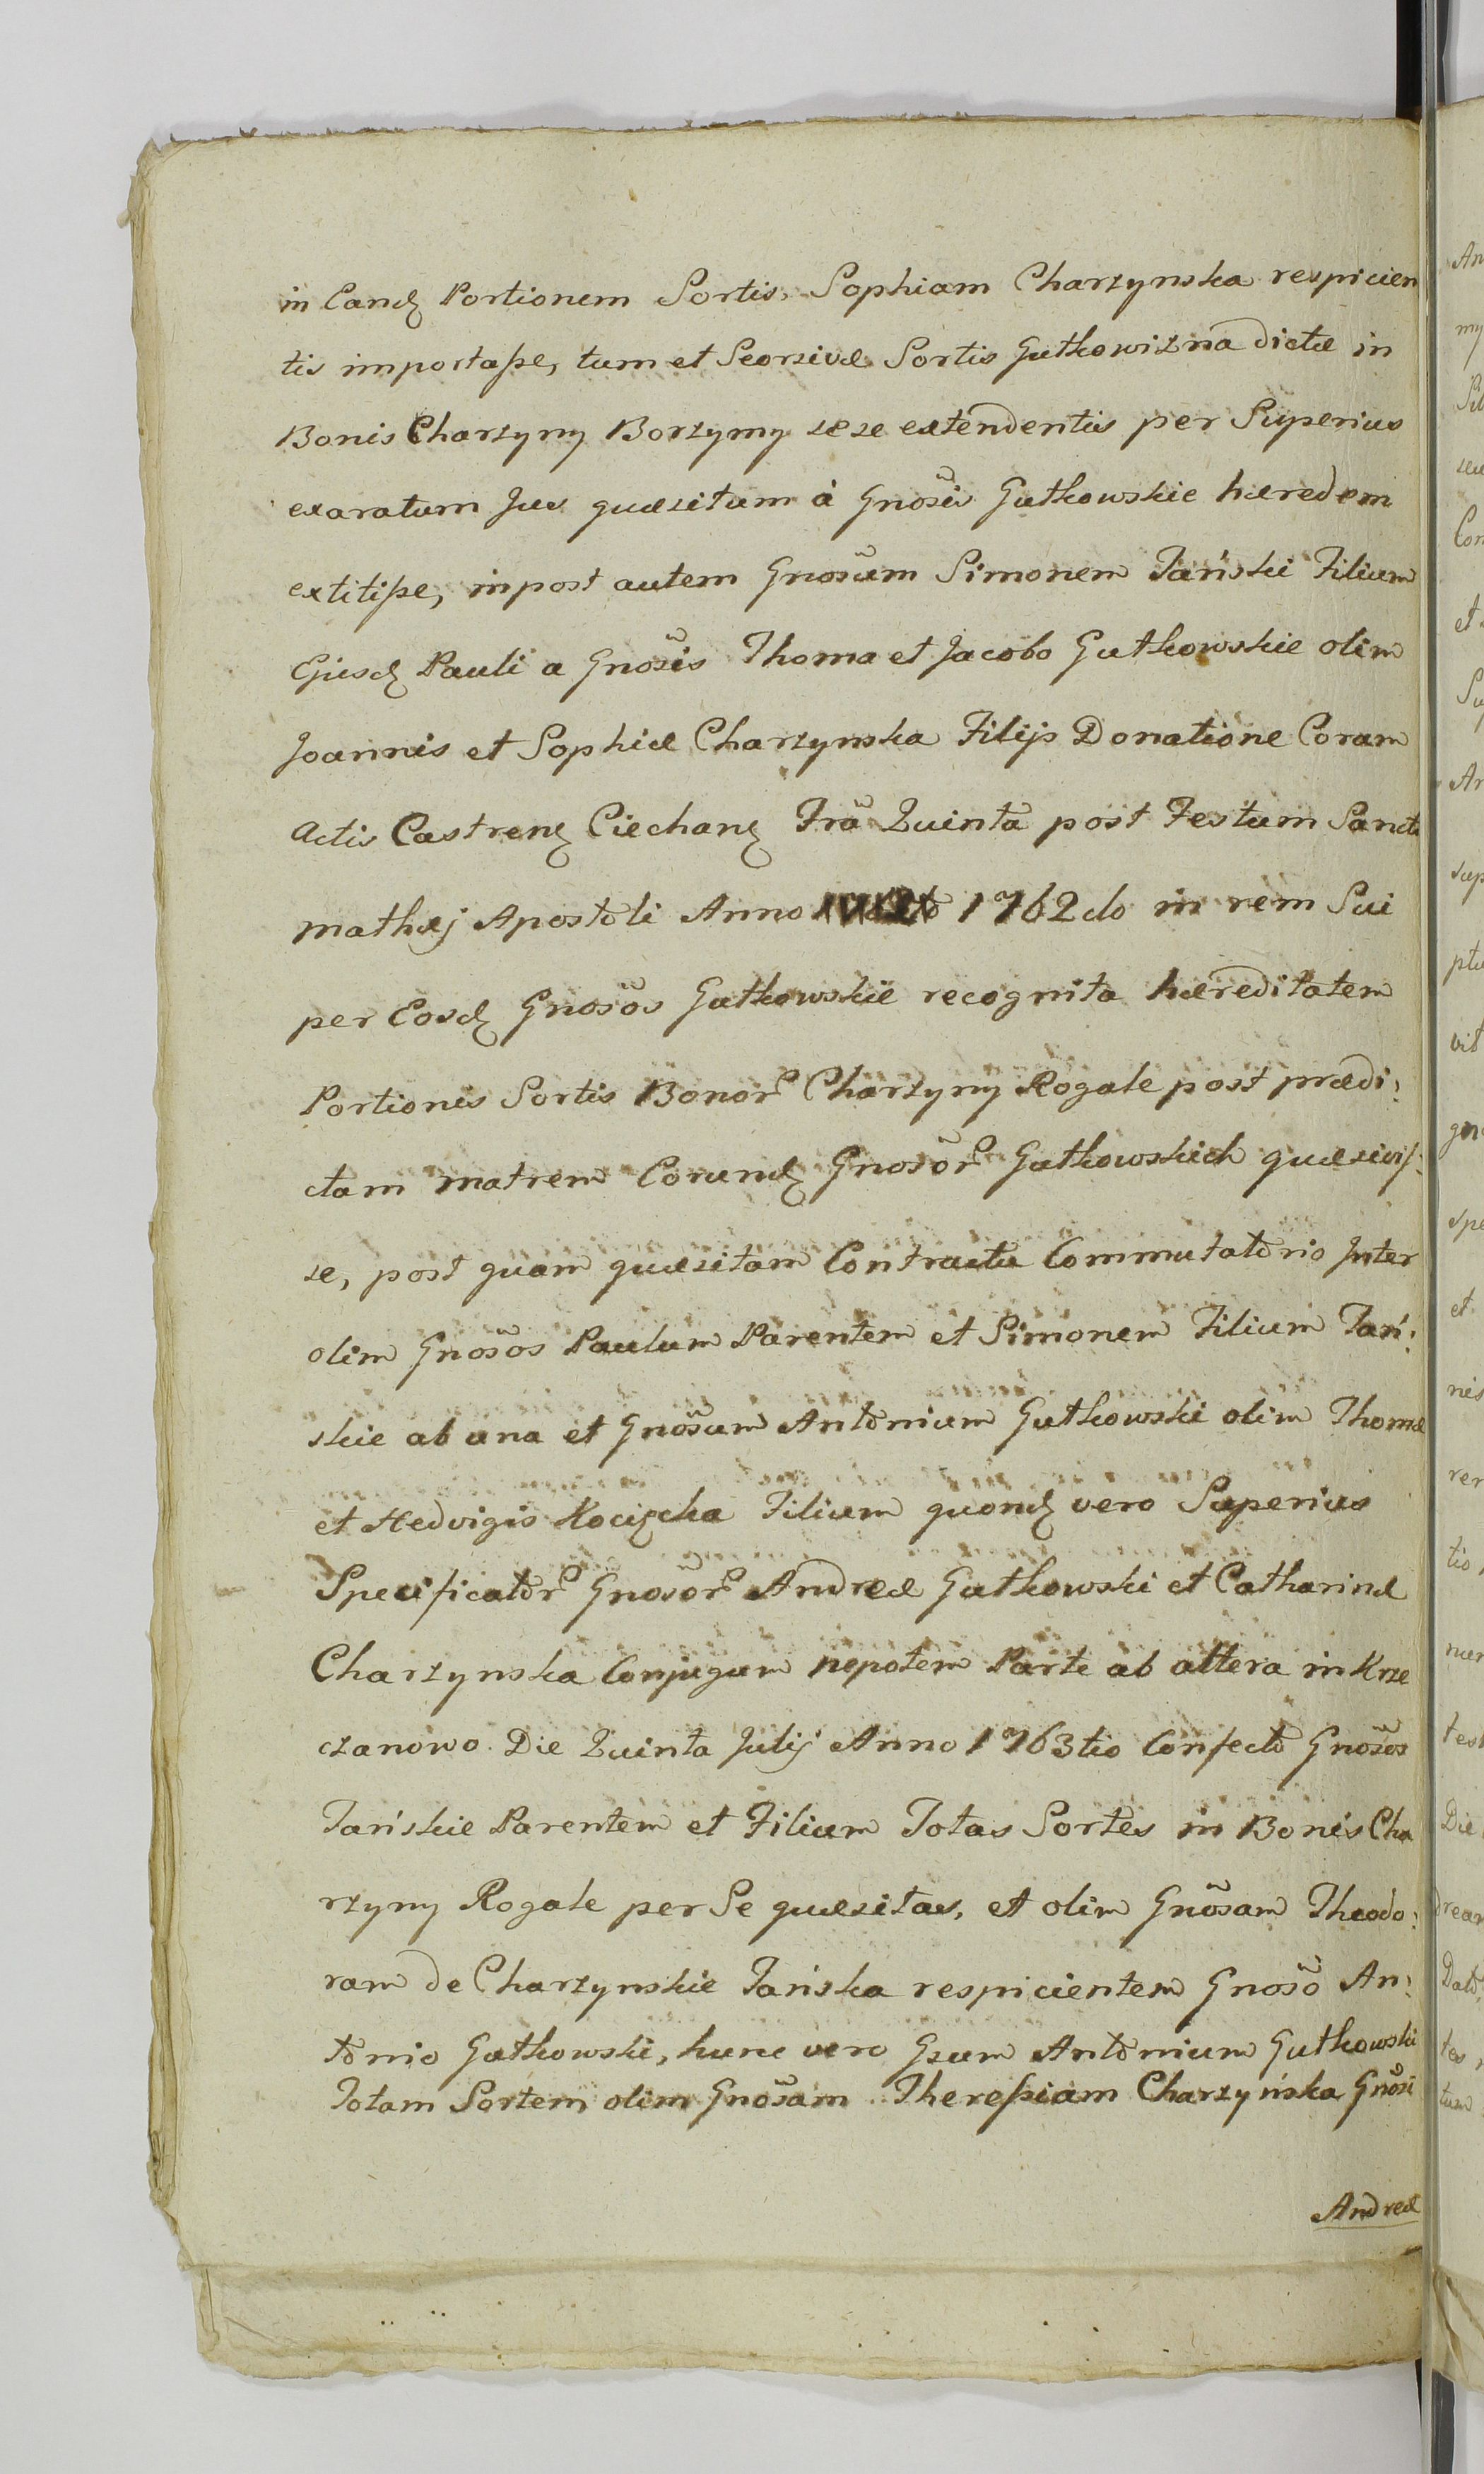 in Eand Portionem Sortis, Sophiam Charzynska respicien
tis importaße, tum et Seorsivæ Sortis Gutkowizna dictæ in
Bonis Charzyny Borzymy sese extendentis per Superius
exaratum Jus quæsitum à Gnosis Gutkowskie hæredem
extitiße, inpost autem Gnosum Simonem Tański Filium
Ejusd Pauli a Gnosis Thoma et Jacobo Gutkowskie olim
Joannis et Sophiæ Charzynska Filijs Donatione Coram
Actis Castren Ciechan Fra Quinta post Festum Sancti
Mathæj Apostoli Anno 1762do in rem Sui
per Eosd Gnosos Gutkowskie recognita hæreditatem
Portionis Sortis Bonor Charzyny Rogale post prædi:
ctam matrem Eorund Gnosor Gutkowskich quæsivis:
se, post quam quæsitam Contractu Commutatorio Inter
olim Gnosos Paulum Parentem et Simonem Filium Tań:
skie ab una et Gnosum Antonium Gutkowski olim Thomæ
et Hedvigis Filium quond vero Superius
Specificator Gnosor Andreæ Gutkowski et Catharinæ
Charzynska Conjugum nepotem Parte ab altera in Krze
czanowo Die Quinta Julij Anno 1763tio Confecto Gnosos
Tańskie Parentem et Filium Totas Sortes in Bonis Cha
rzyny Rogale per Se quæsitas, et olim Gnosam Theodo:
ram de Charzynskie Tańska respicientem Gnoso An:
tonio Gutkowski, hunc vero Gsum Antonium Gutkowski
Totam Sortem olim Gnosam Thereßiam Charzyńska Gnosi
Andreæ